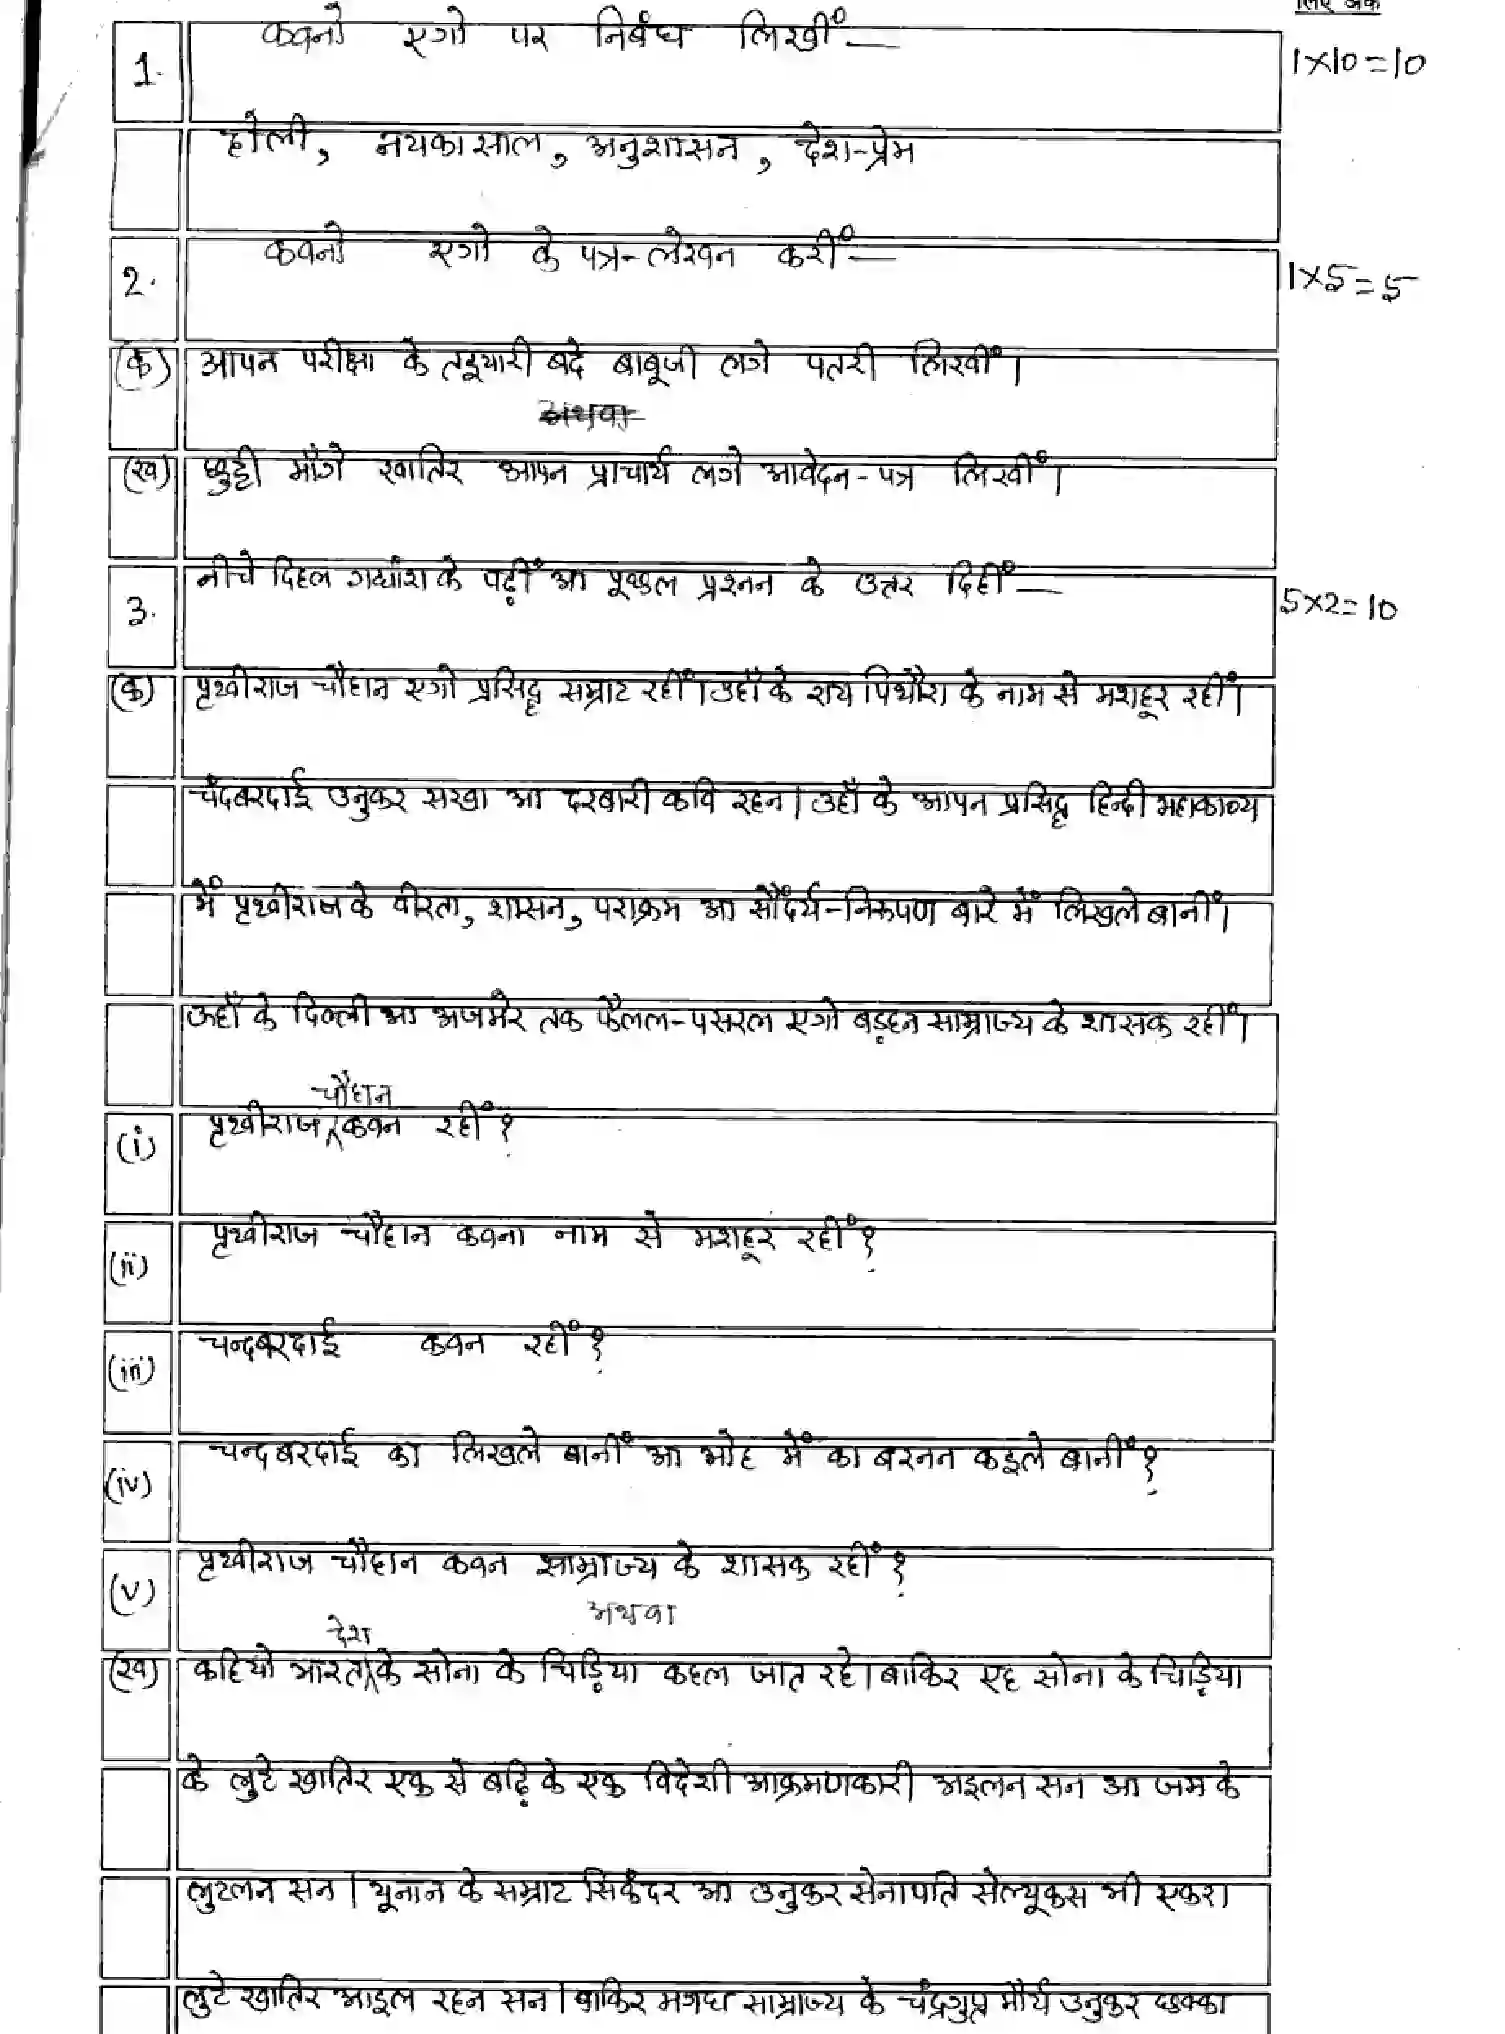 लिए अंक
1. कवनो एगो पर निबंध लिखीं— 1×10=10
होली, नयका साल, अनुशासन, देश-प्रेम
2. कवनो एगो के पत्र-लेखन करीं— 1×5=5
(क) आपन परीक्षा के तइयारी बदे बाबूजी लगे पतरी लिखीं।
अथवा
(ख) छुट्टी माँगे खातिर आपन प्राचार्य लगे आवेदन-पत्र लिखीं।
3. नीचे दिहल गद्यांश के पढ़ीं आ पूछल प्रश्नन के उत्तर दिहीं— 5×2=10
(क) पृथ्वीराज चौहान एगो प्रसिद्ध सम्राट रहीं। उहाँ के राय पिथौरा के नाम से मशहूर रहीं।
चंदबरदाई उनुकर सखा आ दरबारी कवि रहन। उहाँ के आपन प्रसिद्ध हिन्दी महाकाव्य
में पृथ्वीराज के वीरता, शासन, पराक्रम आ सौंदर्य-निरूपण बारे में लिखले बानीं।
ऊहाँ के दिल्ली आ अजमेर तक फैलल-पसरल एगो बड़हन साम्राज्य के शासक रहीं।
(i) पृथ्वीराज चौहान कवन रहीं?
(ii) पृथ्वीराज चौहान कवना नाम से मशहूर रहीं?
(iii) चन्दबरदाई कवन रहीं?
(iv) चन्दबरदाई का लिखले बानीं आ ओह में का बरनन कइले बानीं?
(v) पृथ्वीराज चौहान कवन साम्राज्य के शासक रहीं?
अथवा
(ख) कहियो भारत देश के सोना के चिड़िया कहल जात रहे। बाकिर एह सोना के चिड़िया
के लुटे खातिर एक से बढ़ि के एक विदेशी आक्रमणकारी अइलन सन आ जम के
लुटलन सन। यूनान के सम्राट सिकंदर आ उनुकर सेनापति सेल्यूकस भी एकरा
लुटे खातिर आइल रहन सन। बाकिर मगध साम्राज्य के चंद्रगुप्त मौर्य उनुकर छक्का